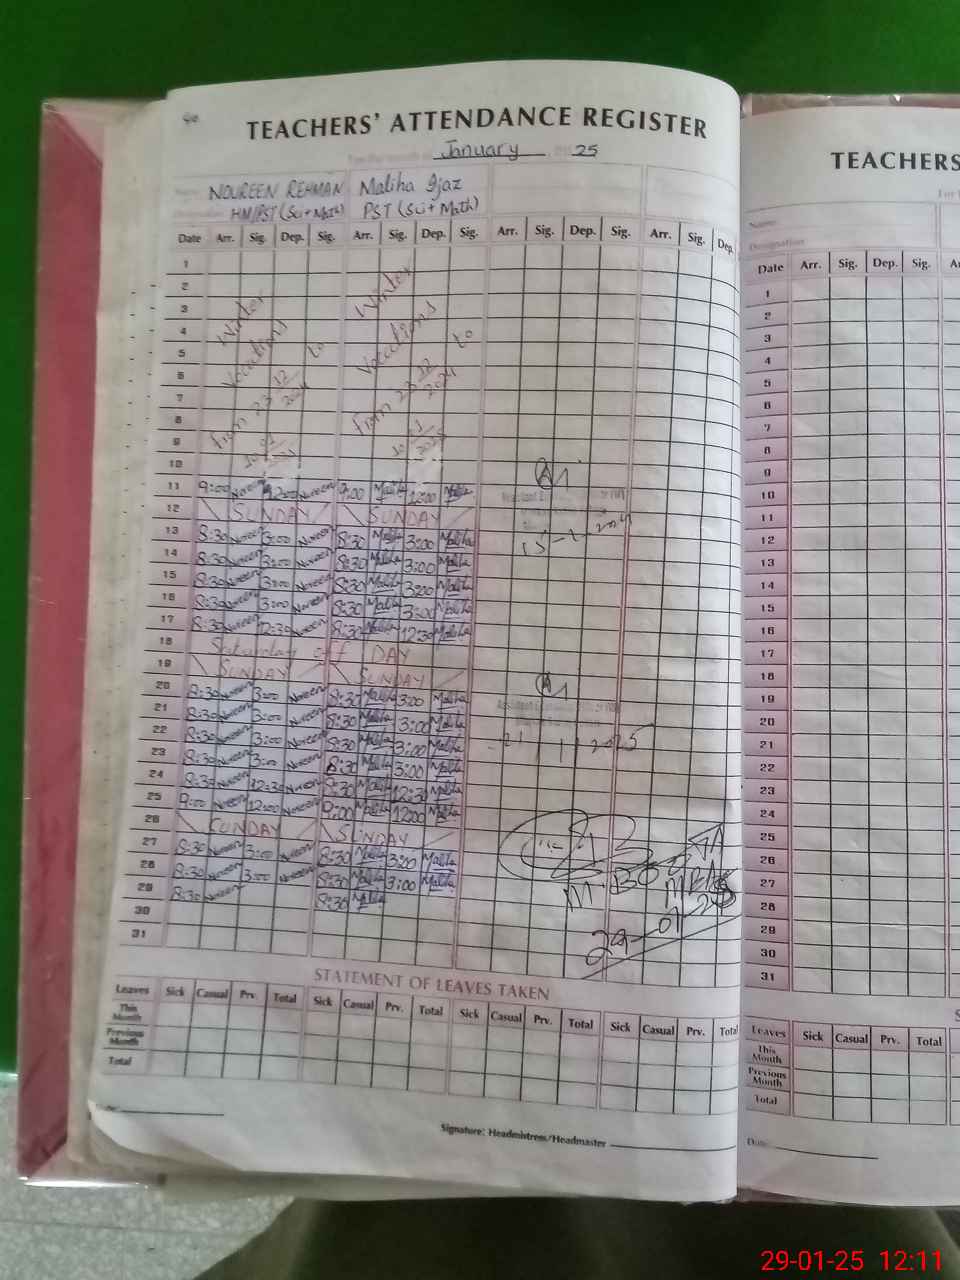 40
TEACHERS' ATTENDANCE REGISTER
January 25
NOUREEN REHMAN Maliha Ijaz
HM/PST (Sci + Math) PST (Sci + Math)
Date Arr. Sig. Dep. Sig. Arr. Sig. Dep. Sig. Arr. Sig. Dep. Sig. Arr. Sig. Dep.
1
2
3
4
5
6
7
8
9
10
Winter Vacations From 23 12/2024 to 10 01/2025
Winter Vacations From 23 12/2024 to 10 01/2025
11 9:00 Noreen 12:00 Noreen 9:00 Maliha 12:00 Maliha
12 SUNDAY SUNDAY
13 8:30 Noreen 3:00 Noreen 8:30 Maliha 3:00 Maliha
14 8:30 Noreen 3:00 Noreen 8:30 Maliha 3:00 Maliha
15 8:30 Noreen 3:00 Noreen 8:30 Maliha 3:00 Maliha
16 8:30 Noreen 3:00 Noreen 8:30 Maliha 3:00 Maliha
17 8:30 Noreen 12:30 Noreen 8:30 Maliha 12:30 Maliha
18 Saturday off DAY
19 SUNDAY SUNDAY
20 8:30 Noreen 3:00 Noreen 8:30 Maliha 3:00 Maliha
21 8:30 Noreen 3:00 Noreen 8:30 Maliha 3:00 Maliha
22 8:30 Noreen 3:00 Noreen 8:30 Maliha 3:00 Maliha
23 8:30 Noreen 3:00 Noreen 8:30 Maliha 3:00 Maliha
24 8:30 Noreen 12:30 Noreen 8:30 Maliha 12:30 Maliha
25 9:00 Noreen 12:00 Noreen 9:00 Maliha 12:00 Maliha
26 SUNDAY SUNDAY
27 8:30 Noreen 3:00 Noreen 8:30 Maliha 3:00 Maliha
28 8:30 Noreen 3:00 Noreen 8:30 Maliha 3:00 Maliha
29 8:30 Noreen 8:30 Maliha
30
31
21/1/2025
MEA
29-01-25
STATEMENT OF LEAVES TAKEN
Leaves Sick Casual Prv. Total Sick Casual Prv. Total Sick Casual Prv. Total Sick Casual Prv. Total
This Month
Previous Month
Total
Signature: Headmistress/Headmaster
TEACHERS
Name:
Designation
Date Arr. Sig. Dep. Sig.
1
2
3
4
5
6
7
8
9
10
11
12
13
14
15
16
17
18
19
20
21
22
23
24
25
26
27
28
29
30
31
Leaves Sick Casual Prv. Total
This Month
Previous Month
Total
Date:
29-01-25 12:11